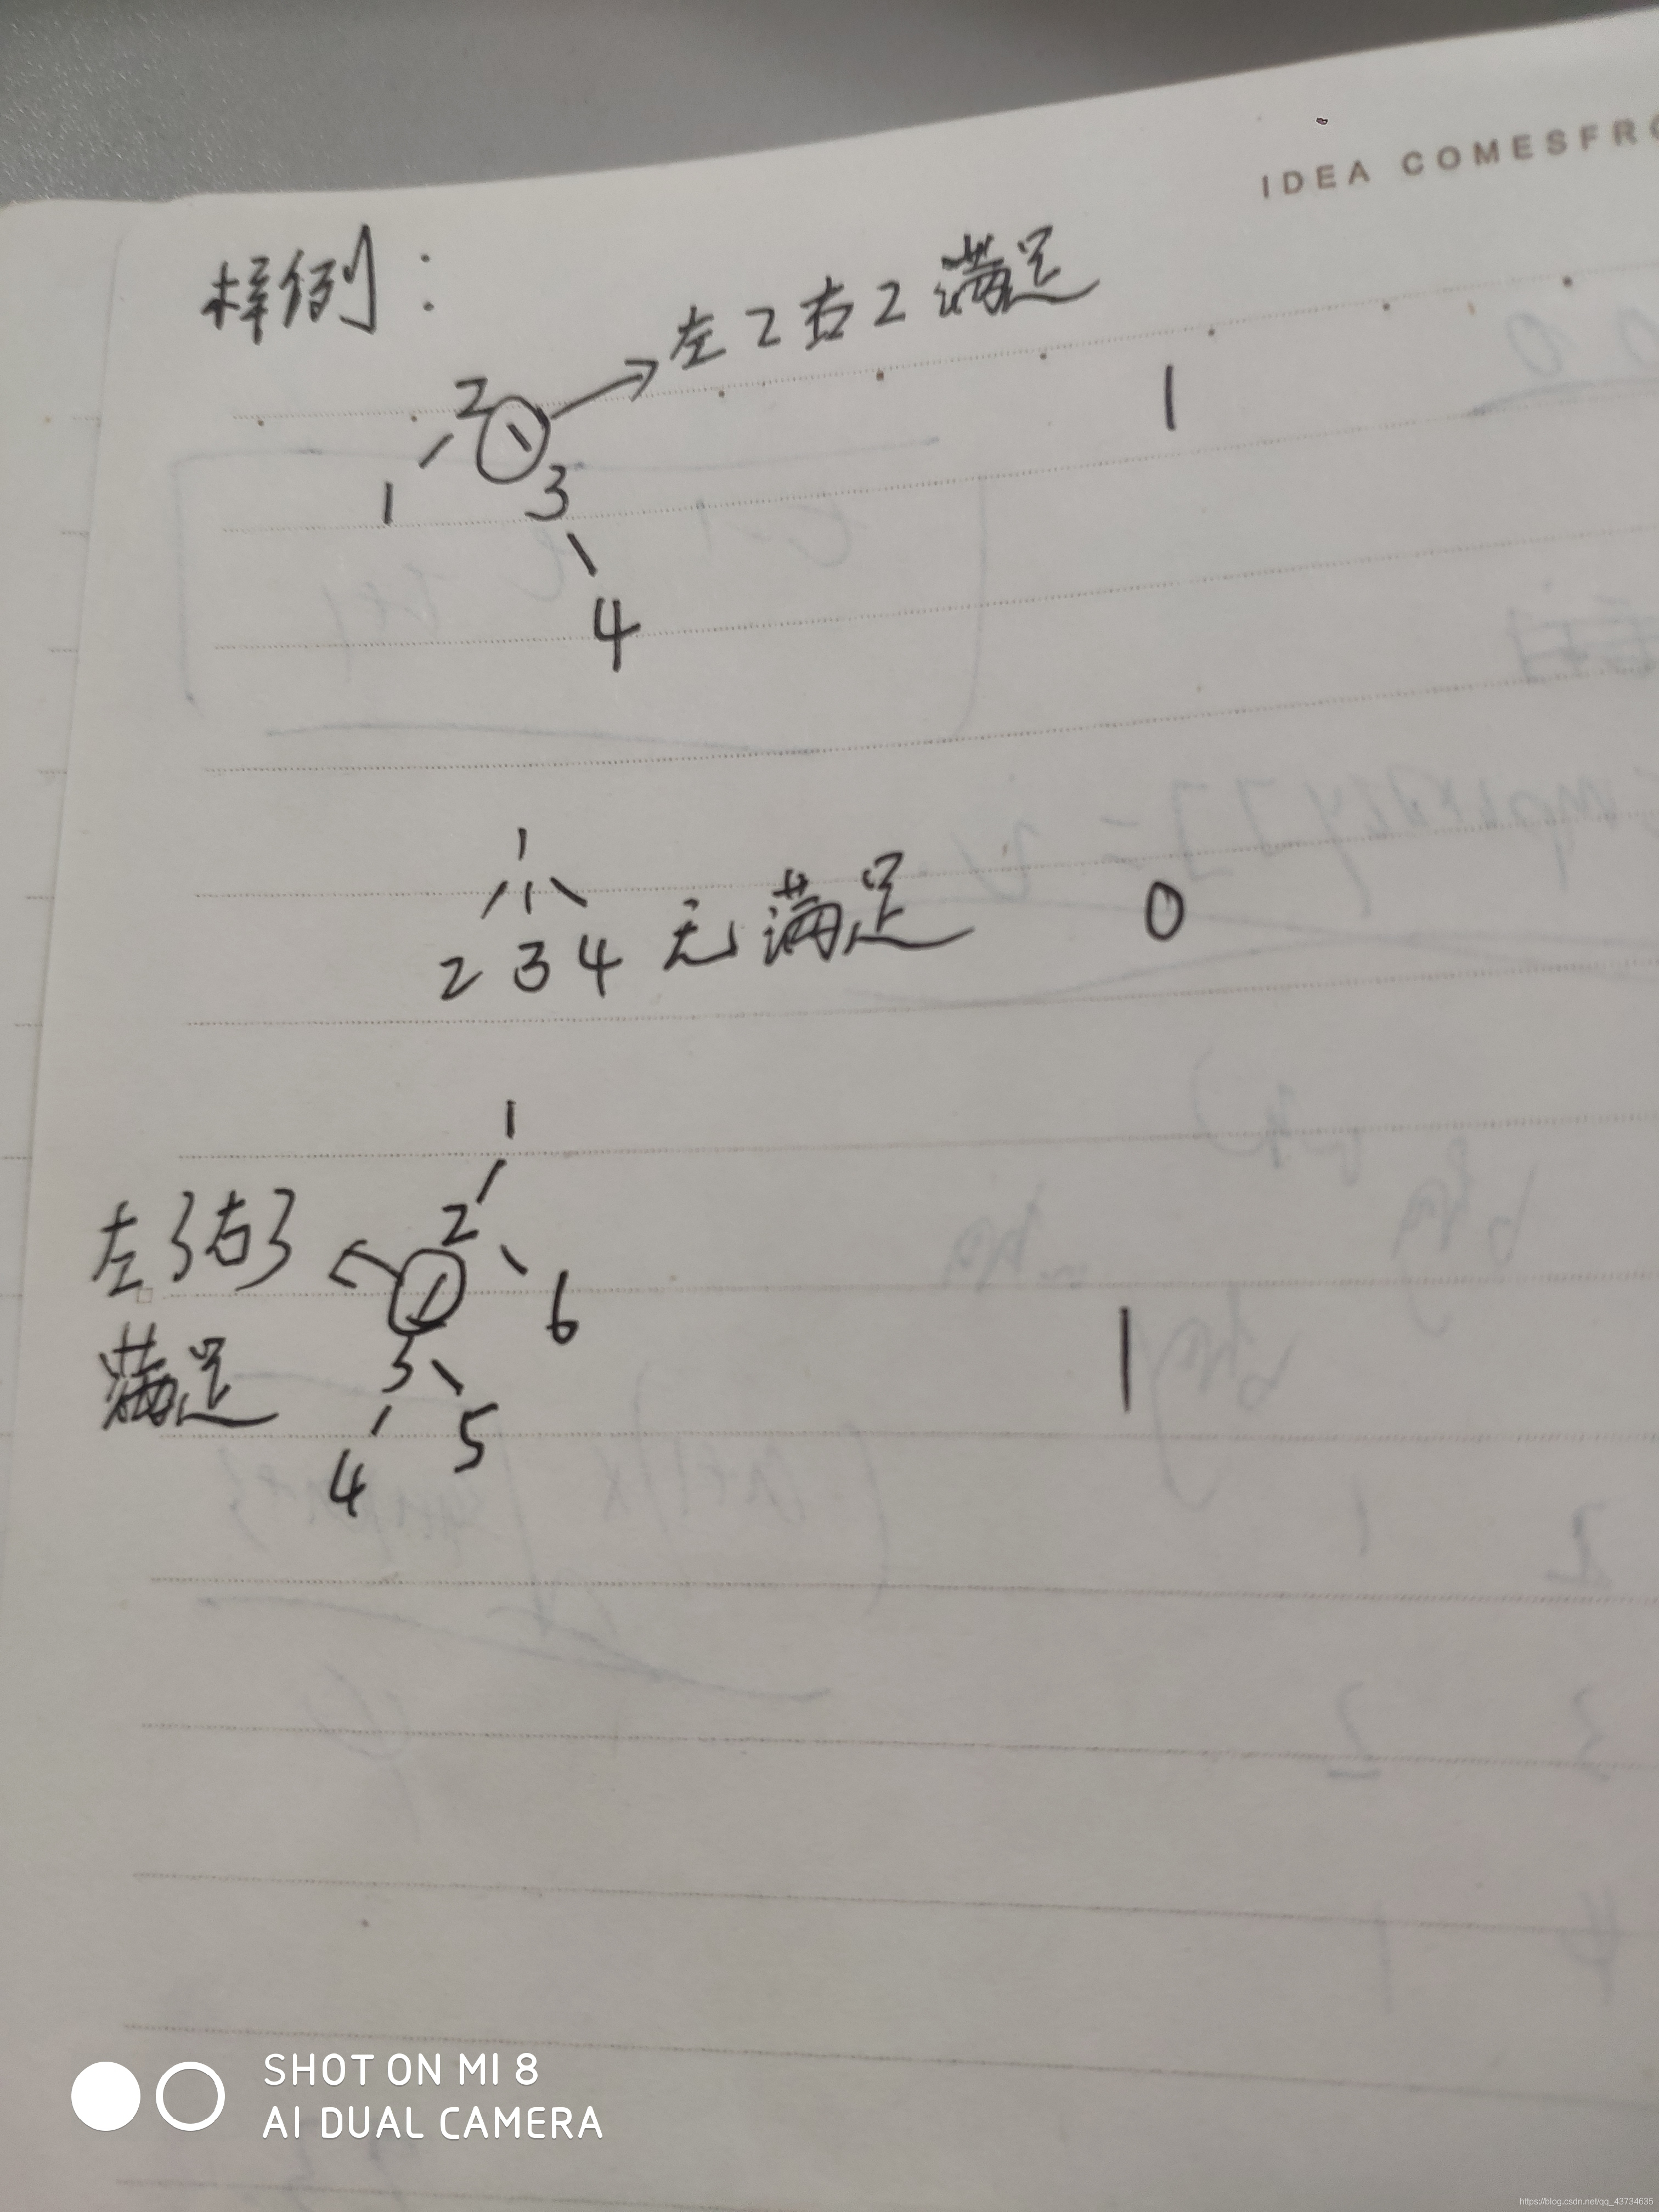 IDEA COMESFRO
样例：
左2右2满足
2
1
1
3
4
1
2 3 4 无满足
0
1
左3右3
2
6
满足
3
1
4
5
SHOT ON MI 8
AI DUAL CAMERA
https://blog.csdn.net/qq_43734635